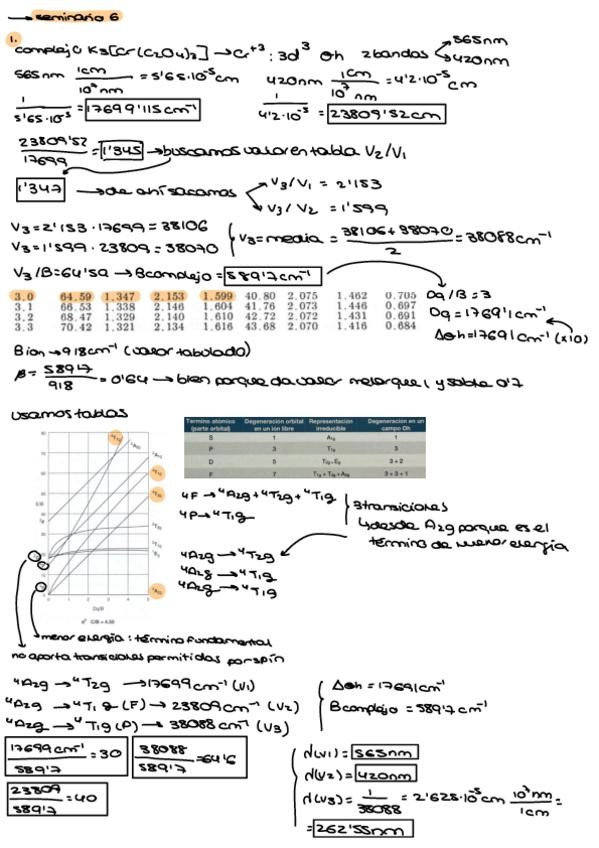 → seminario 6
1.
complejo K3[Cr(C2O4)3] → Cr+3: 3d3 Oh 2 bandas 565nm
420nm
565nm 1cm / 10⁷ nm = 5'65·10⁻⁵ cm 420nm 1cm / 10⁷ nm = 4'2·10⁻⁵ cm
1 / 5'65·10⁻⁵ = 17699'115cm⁻¹ 1 / 4'2·10⁻⁵ = 23809'52cm
23809'52 / 17699 = 1'345 → buscamos valor en tabla V2/V1
1'347 → de ahí sacamos V3/V1 = 2'153
V3/V2 = 1'599
V3 = 2'153·17699 = 38106
V3 = 1'599·23809 = 38070
V3 = media = 38106+38070 / 2 = 38088cm⁻¹
V3/B = 64'59 → Bcomplejo = 589'7cm⁻¹
3.0 64.59 1.347 2.153 1.599 40.80 2.075 1.462 0.705
3.1 66.53 1.338 2.146 1.604 41.76 2.073 1.446 0.697
3.2 68.47 1.329 2.140 1.610 42.72 2.072 1.431 0.691
3.3 70.42 1.321 2.134 1.616 43.68 2.070 1.416 0.684
Dq/B = 3
Dq = 1769'1cm⁻¹
Δoh = 17691cm⁻¹ (x10)
Bion → 918cm⁻¹ (valor tabulado)
β = 589'7 / 918 = 0'64 → bien porque da valor menor que 1 y sobre 0'7
usamos tablas
Término atómico (parte orbital) Degeneración orbital en un ion libre Representación irreducible Degeneración en un campo Oh
S 1 A1g 1
P 3 T1g 3
D 5 T2g + Eg 3+2
F 7 T1g + T2g + A2g 3+3+1
E/B
Dq/B
d³ C/B = 4.50
4F → 4A2g + 4T2g + 4T1g
4P → 4T1g
3 transiciones
desde A2g porque es el
término de menor energía
4A2g → 4T2g
4A2g → 4T1g
4A2g → 4T1g
menor energía: término fundamental
no aporta transiciones permitidas por spin
4A2g → 4T2g → 17699cm⁻¹ (V1)
4A2g → 4T1g (F) → 23809cm⁻¹ (V2)
4A2g → 4T1g (P) → 38088cm⁻¹ (V3)
Δoh = 17691cm⁻¹
Bcomplejo = 589'7cm⁻¹
17699cm⁻¹ / 589'7 = 30
38088 / 589'7 = 64'6
23809 / 589'7 = 40
λ(V1) = 565nm
λ(V2) = 420nm
λ(V3) = 1 / 38088 = 2'625·10⁻⁵ cm 10⁷ nm / 1cm =
= 262'55nm